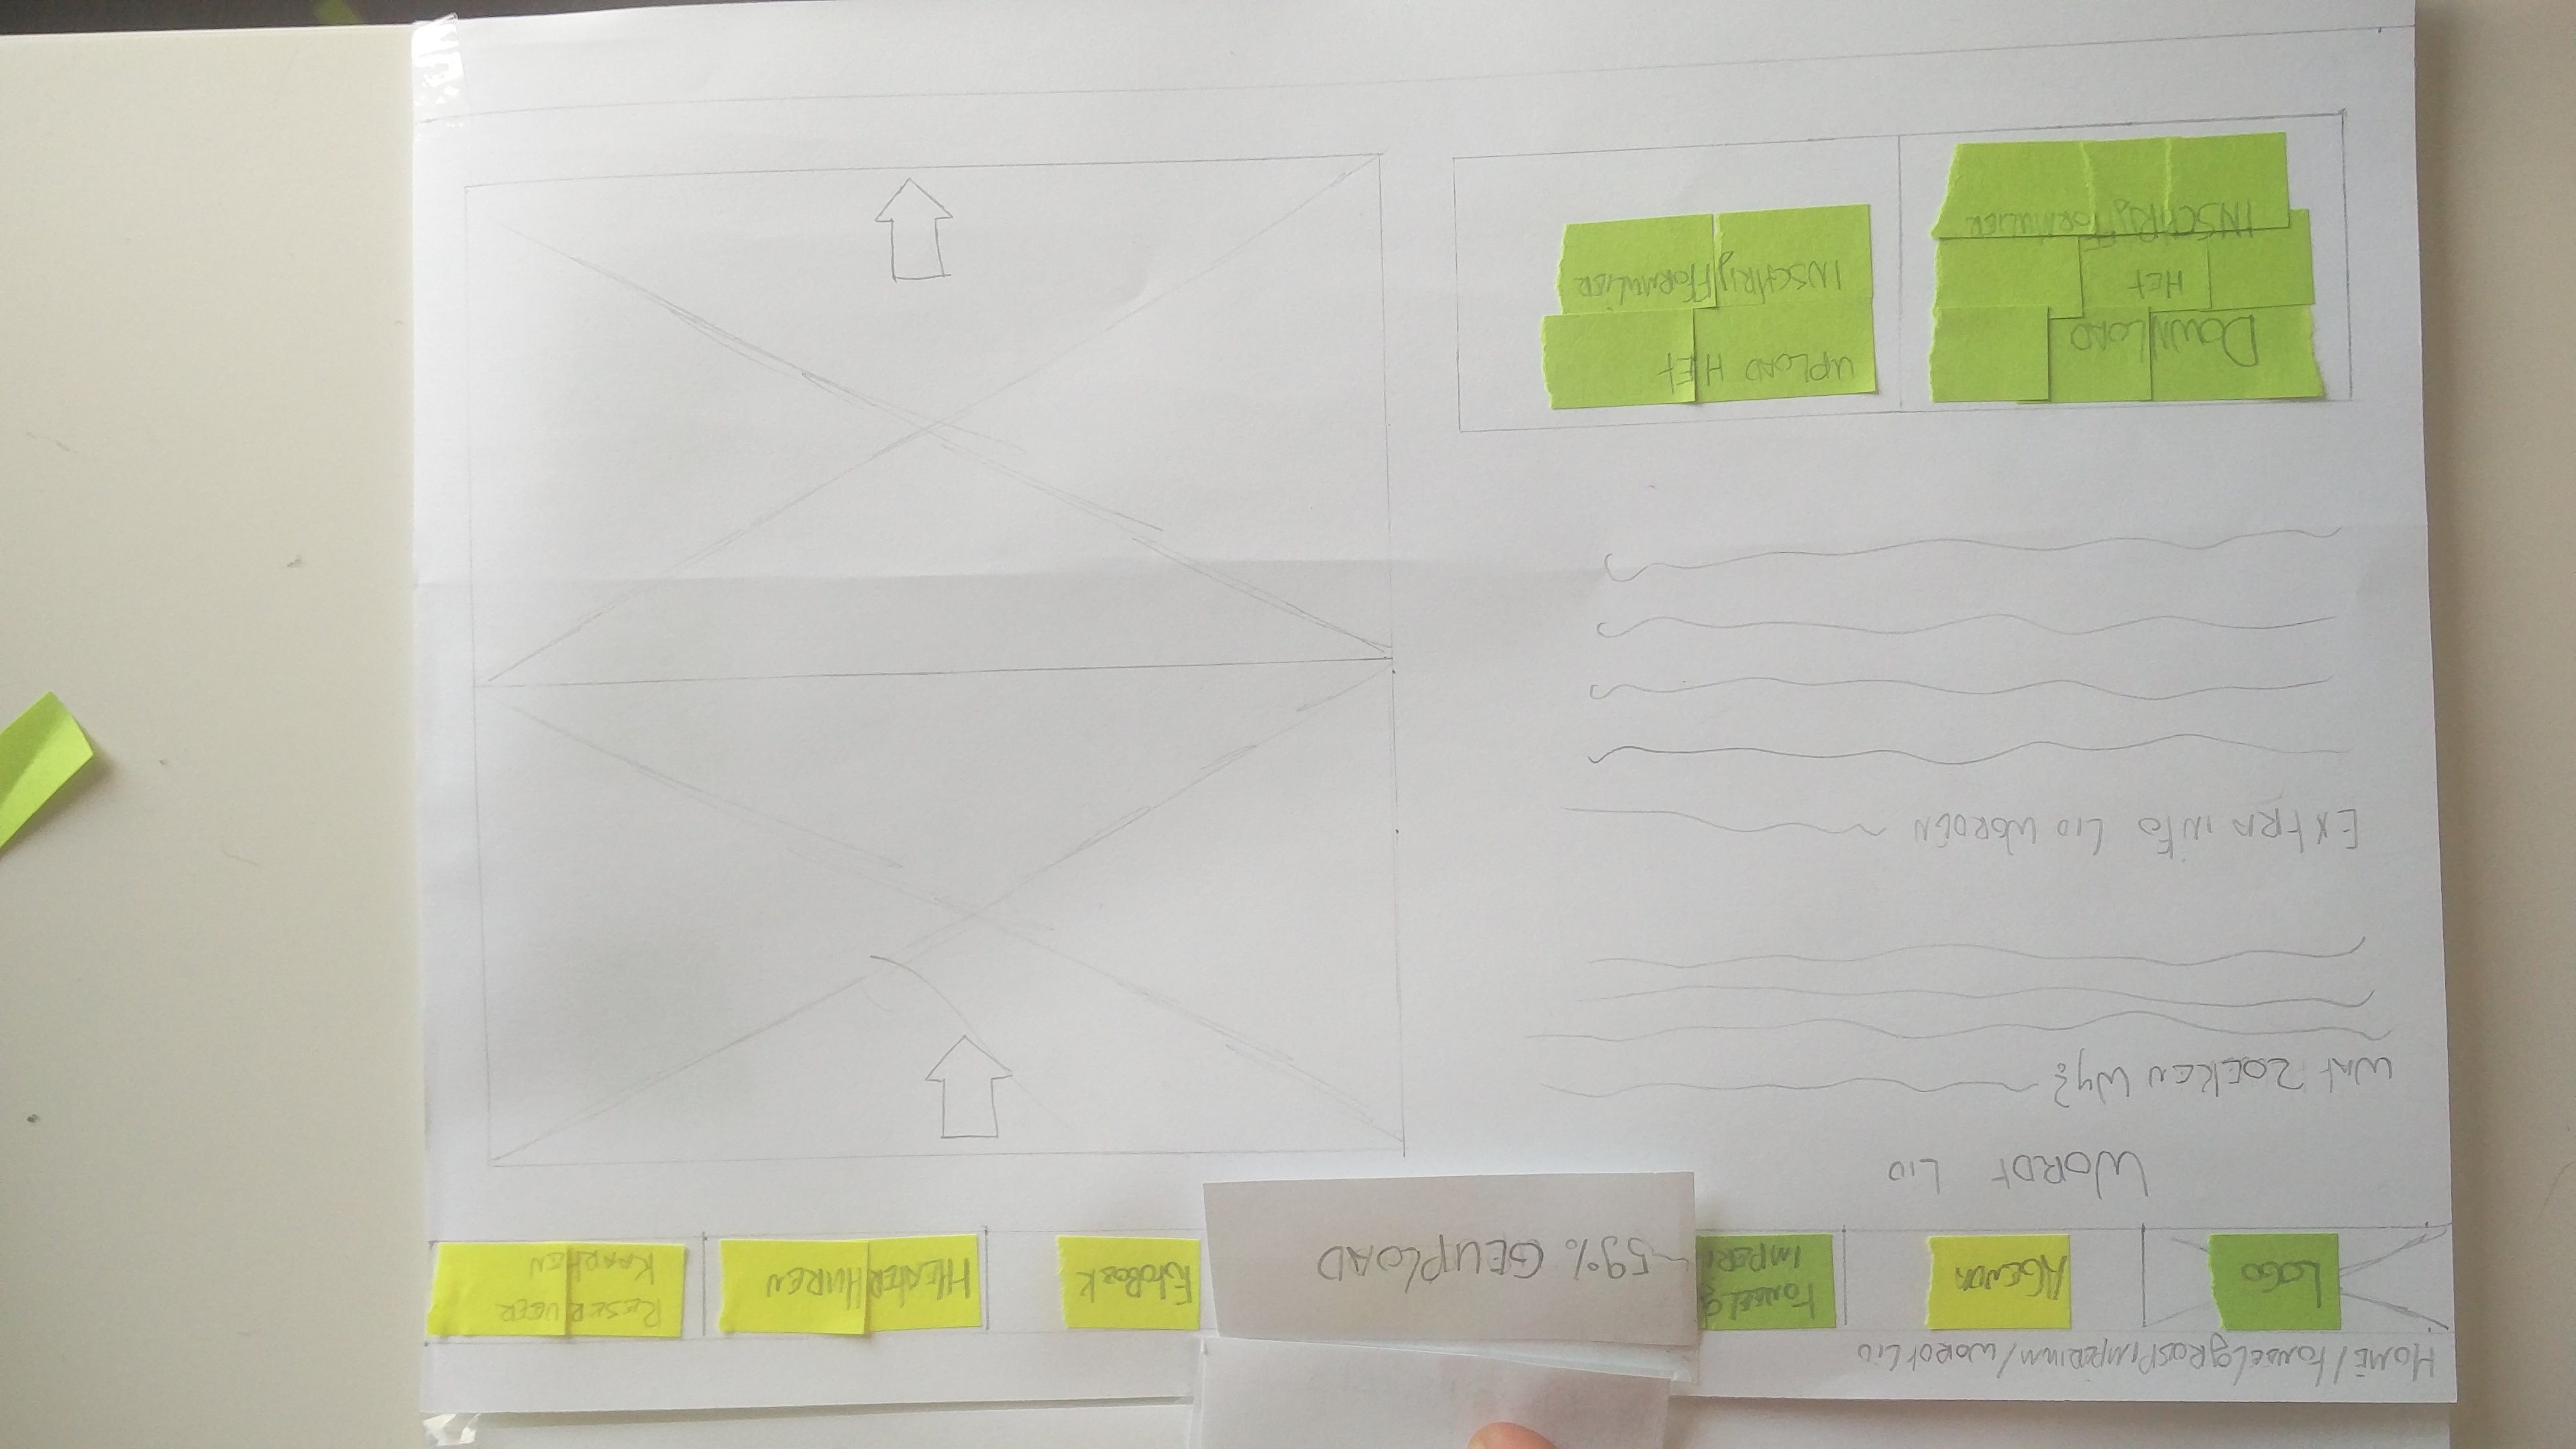 HOME/TONEELGROEP IMPERIUM/WORDT LID
LOGO
AGENDA
TONEELG
IMPERI
59% GEUPLOAD
FOTOBOEK
THEATER HUREN
RESERVEER
KAARTEN
WORDT LID
WAT ZOEKEN WIJ?
EXTRA INFO LID WORDEN
DOWNLOAD
HET
INSCHRIJFFORMULIER
UPLOAD HET
INSCHRIJFFORMULIER